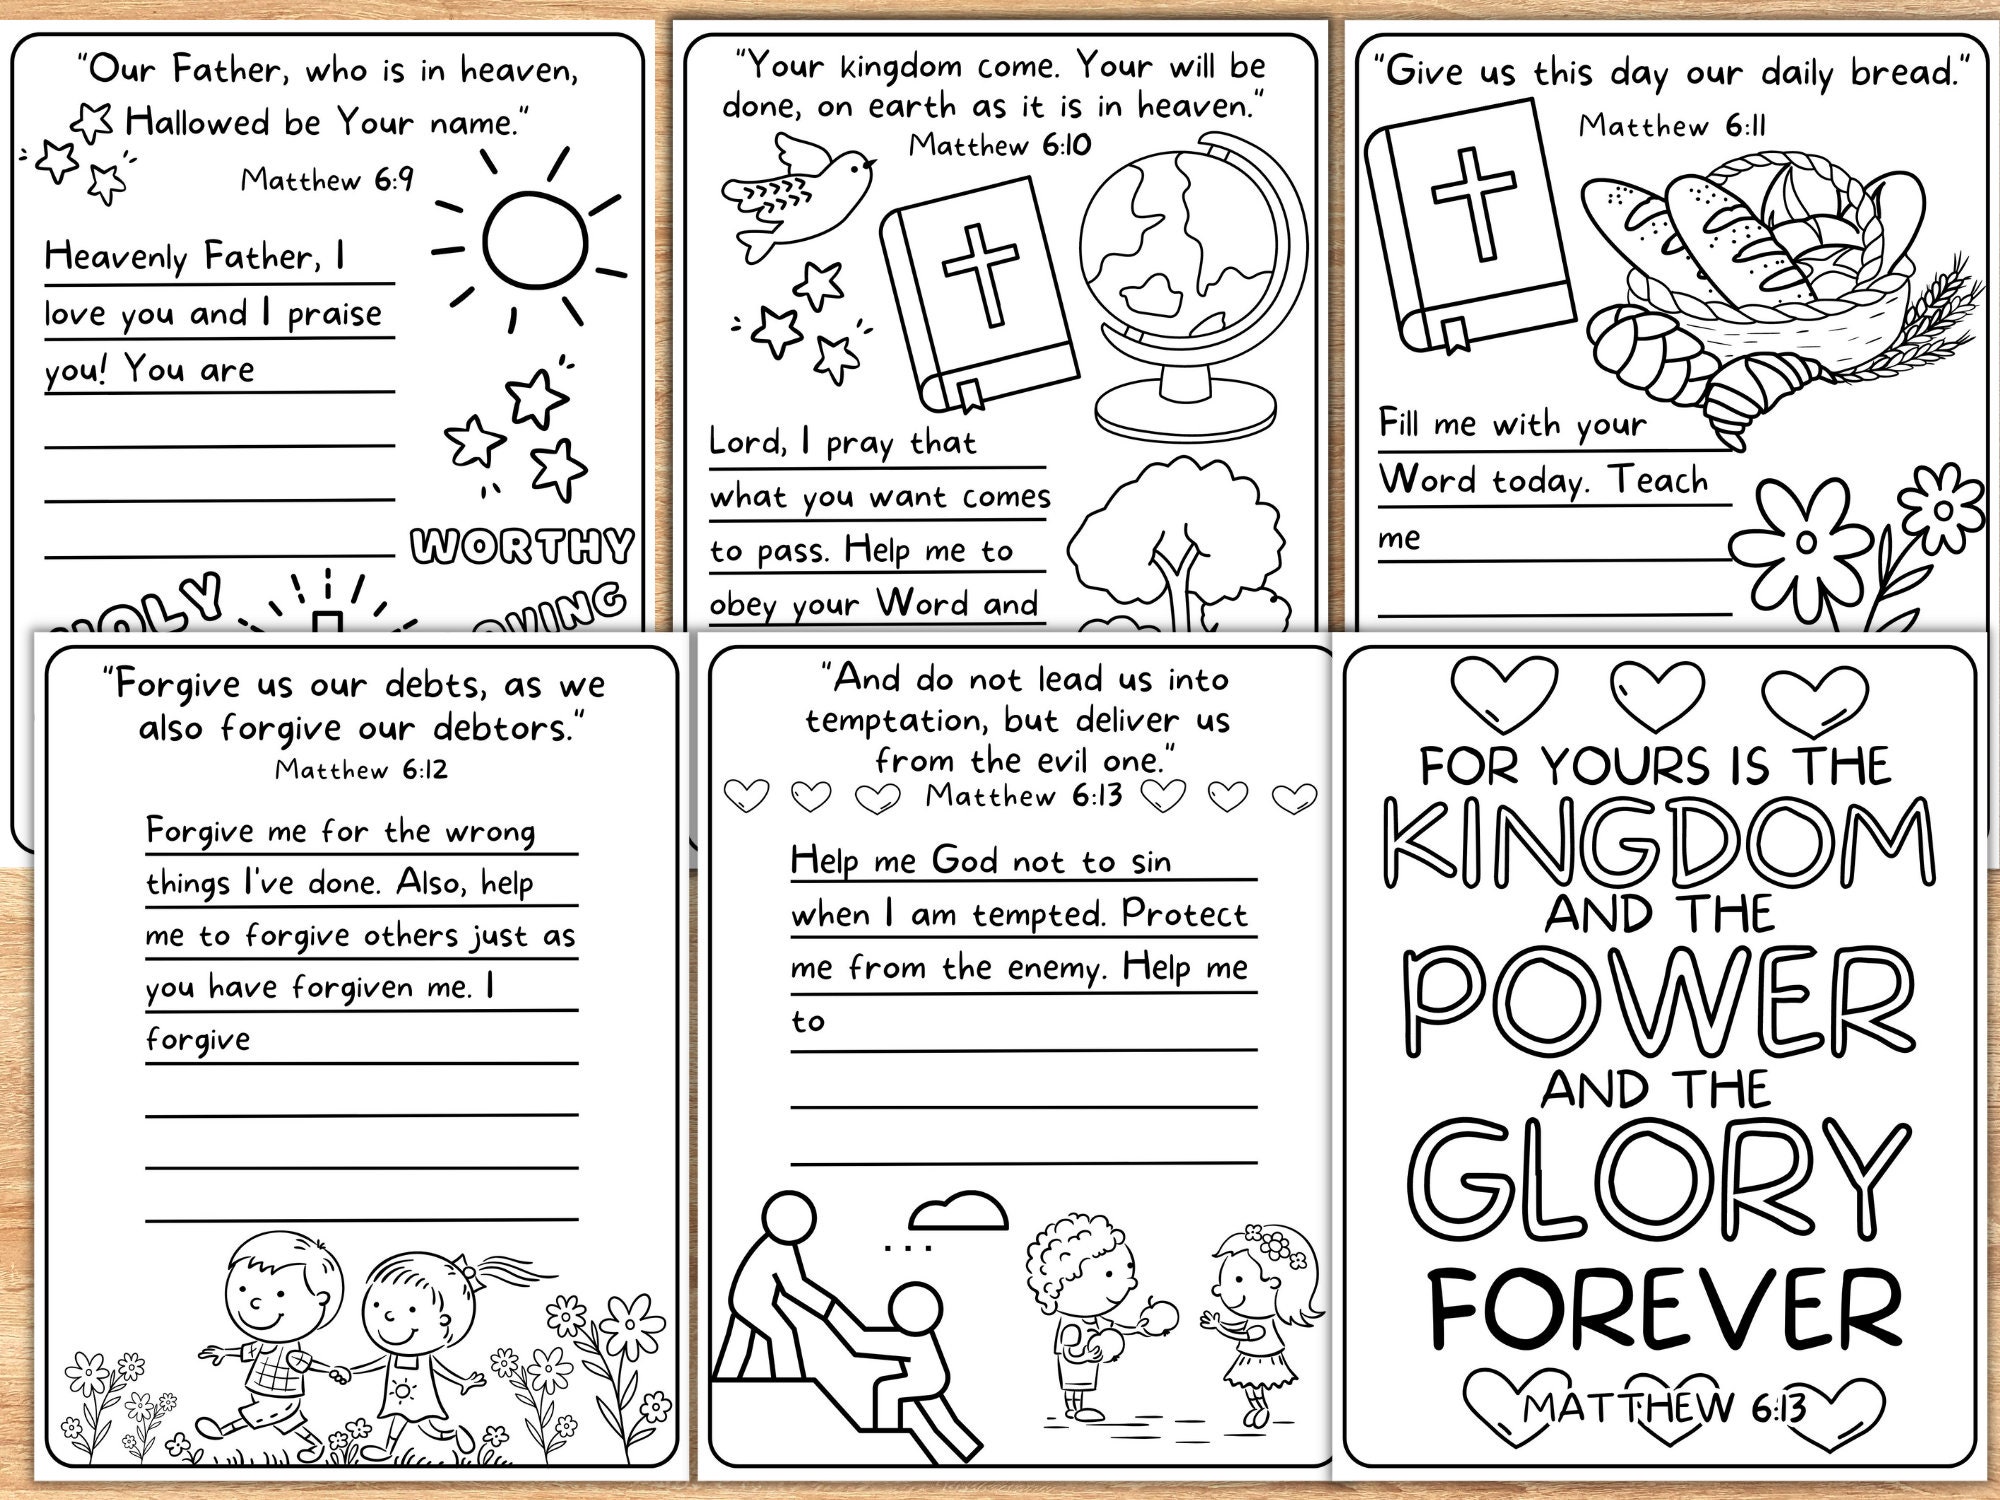 "Our Father, who is in heaven,
Hallowed be Your name."
Matthew 6:9
Heavenly Father, I
love you and I praise
you! You are
WORTHY
HOLY
"Your kingdom come. Your will be
done, on earth as it is in heaven."
Matthew 6:10
Lord, I pray that
what you want comes
to pass. Help me to
obey your Word and
"Give us this day our daily bread."
Matthew 6:11
Fill me with your
Word today. Teach
me
"Forgive us our debts, as we
also forgive our debtors."
Matthew 6:12
Forgive me for the wrong
things I've done. Also, help
me to forgive others just as
you have forgiven me. I
forgive
"And do not lead us into
temptation, but deliver us
from the evil one."
Matthew 6:13
Help me God not to sin
when I am tempted. Protect
me from the enemy. Help me
to
FOR YOURS IS THE
KINGDOM
AND THE
POWER
AND THE
GLORY
FOREVER
MATTHEW 6:13